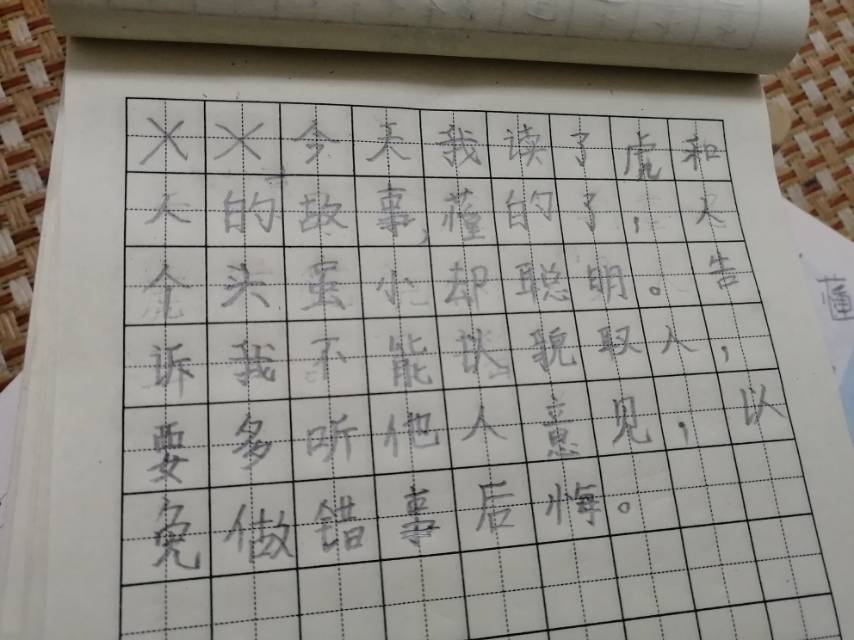 ××今天我读了虎和
人的故事,懂的了,人
个头虽小却聪明。告
诉我不能以貌取人,
要多听他人意见,以
免做错事后悔。